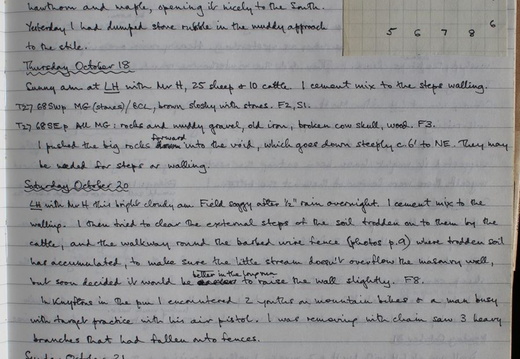 hawthorn and maple, opening it nicely to the South.
Yesterday I had dumped stone rubble in the muddy approach
to the stile.
5 6 7 8 6
Thursday October 18
Sunny am at LH with Mr H, 25 sheep & 10 cattle. I cement mix to the steps walling.
T27.68SWp MG (stones)/BCL, brown sloshy with stones. F2, S1.
T27.68SEp All MG: rocks and muddy gravel, old iron, broken cow skull, wood. F3.
I pushed the big rocks forward into the void, which goes down steeply c.6' to NE. They may
be needed for steps or walling.
Saturday October 20
LH with Mr H this bright cloudy am. Field soggy after ½" rain overnight. I cement mix to the
walling. I then tried to clear the external steps of the soil trodden on to them by the
cattle, and the walkway round the barbed wire fence (photos p.9) where trodden soil
has accumulated, to make sure the little stream doesn't overflow the masonry wall,
but soon decided it would be better in the long run to raise the wall slightly. F8.
In in the pm I encountered 2 youths on mountain bikes & a man busy
with target practice with his air pistol. I was removing with chain saw 3 heavy
branches that had fallen onto fences.
Sunday October 21